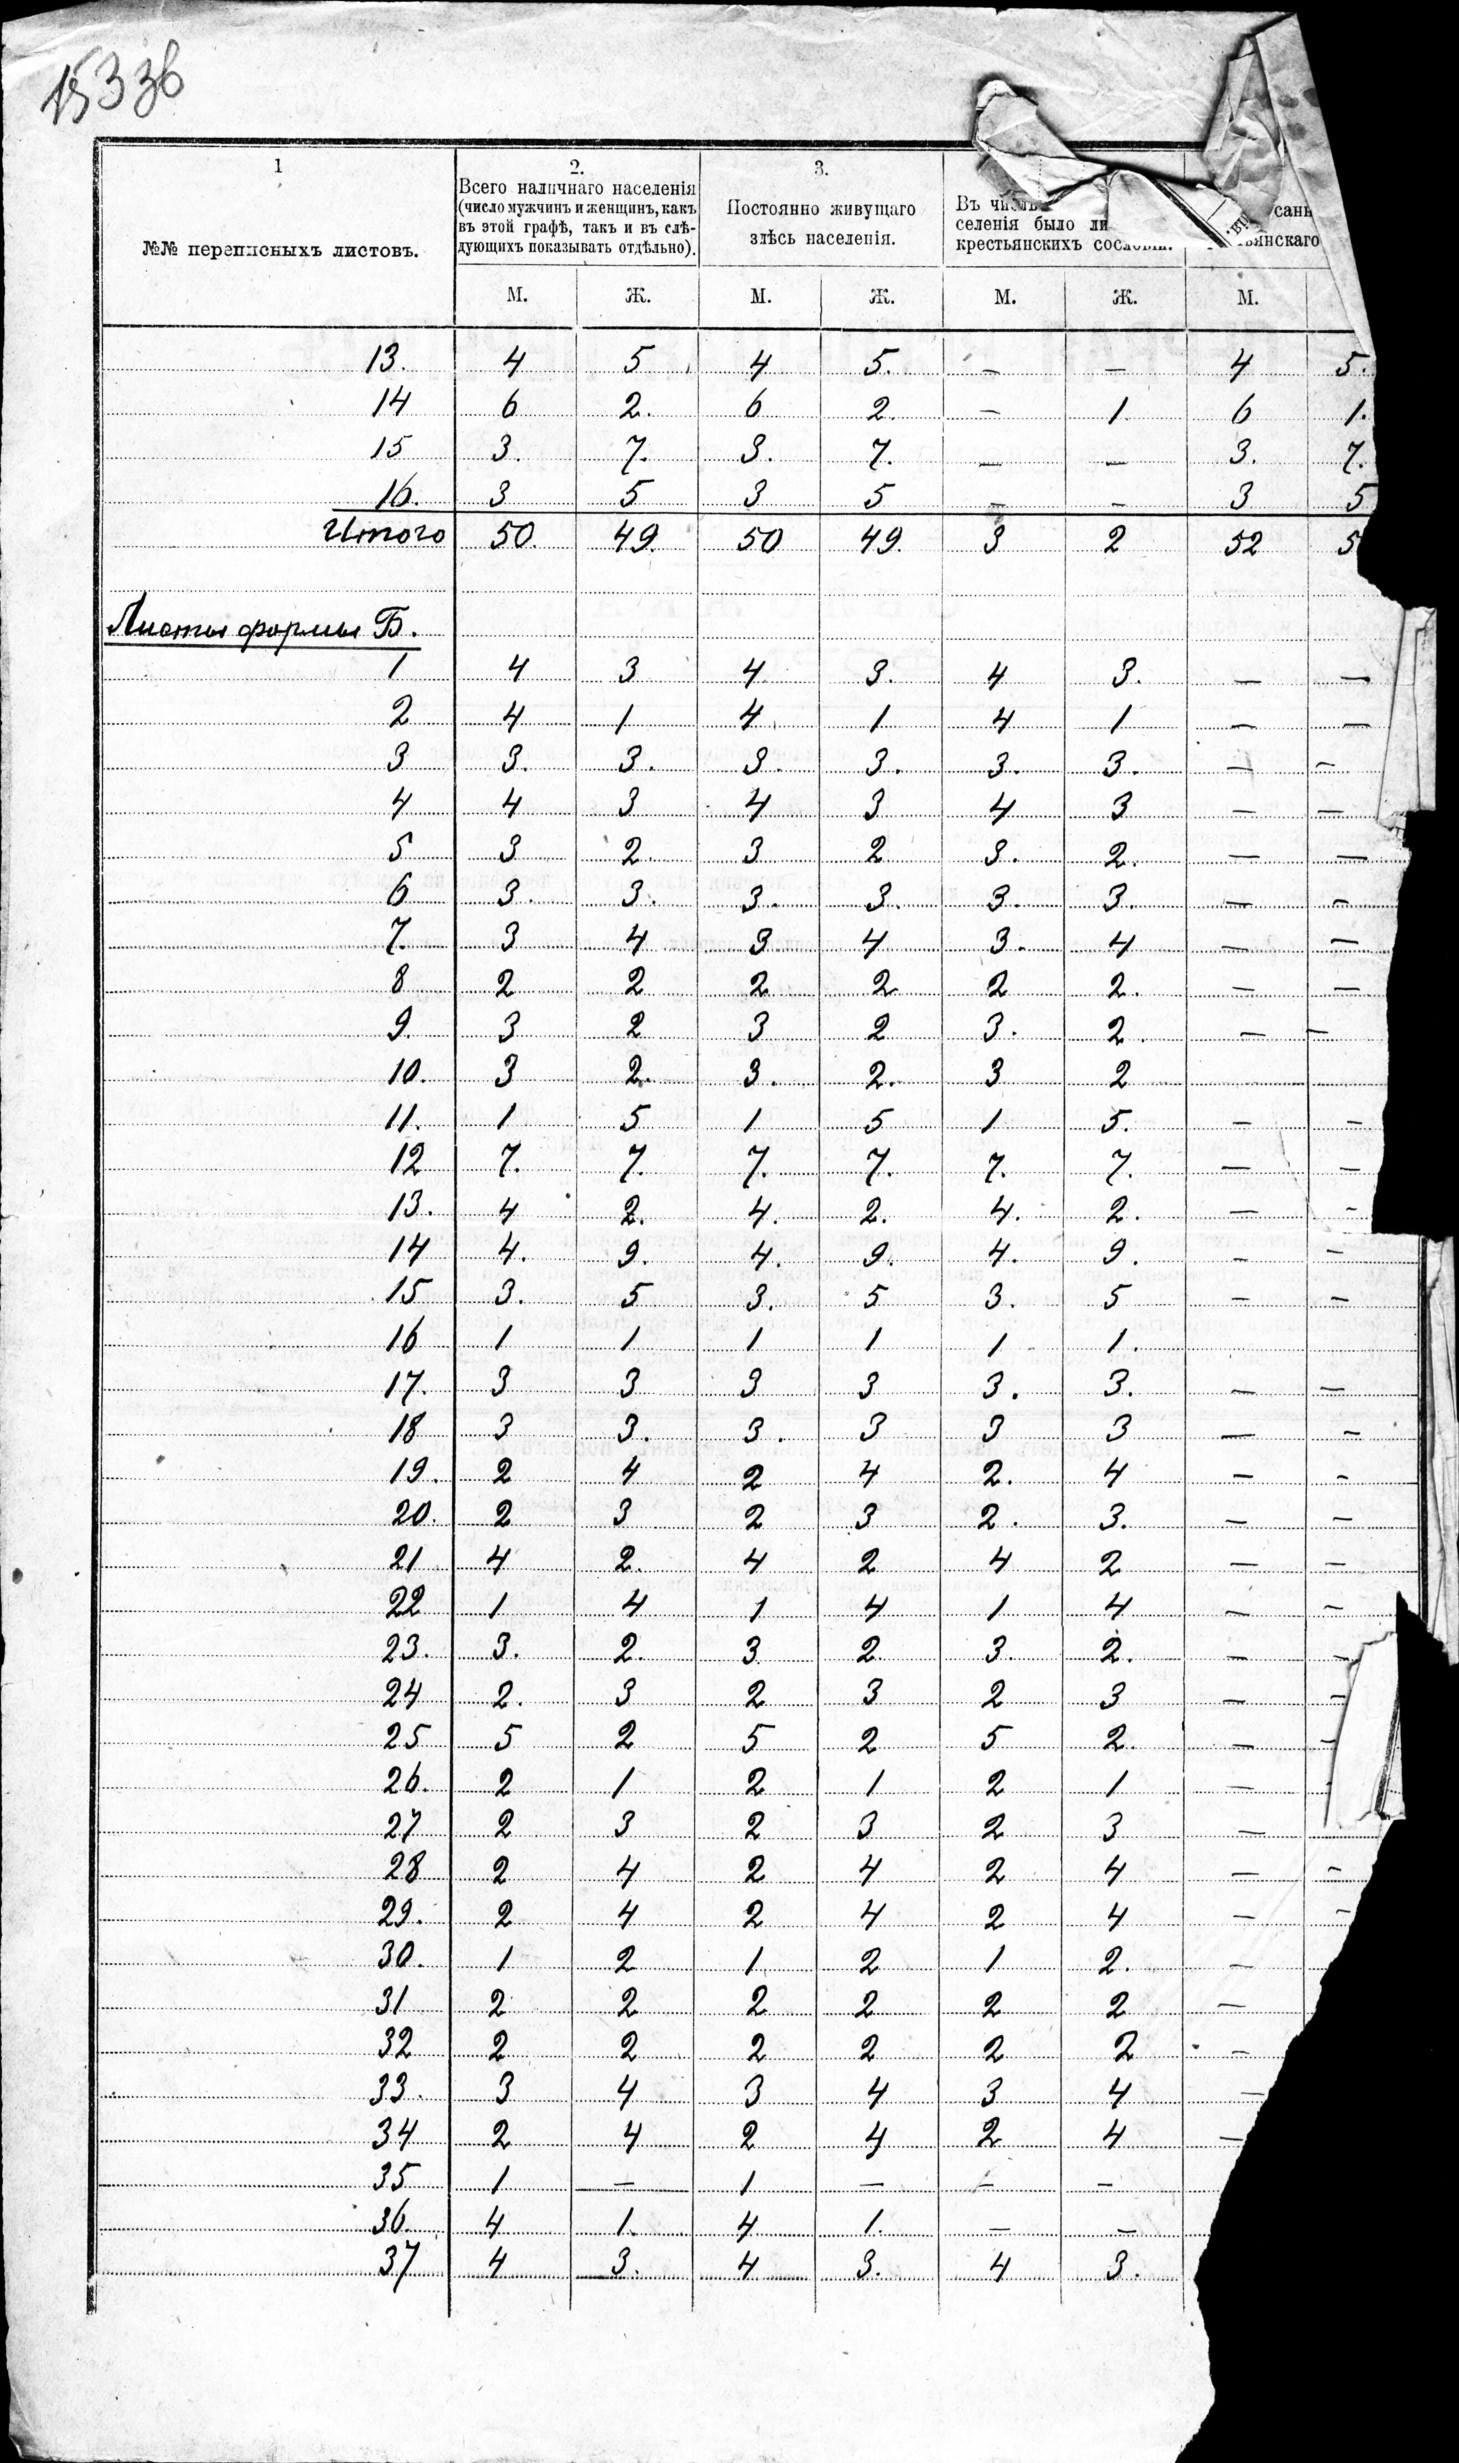 15336
1
2.
3.
№№ переписныхъ листовъ.
Всего наличнаго населенія
(число мужчинъ и женщинъ, какъ
въ этой графѣ, такъ и въ слѣ-
дующихъ показывать отдѣльно).
Постоянно живущаго
здѣсь населенія.
Въ
селенія было ли
крестьянскихъ
М. Ж. М. Ж. М. Ж. М.
13. 4 5 4 5. — — 4 5.
14 6 2. 6 2. — 1 6 1.
15 3. 7. 3. 7. — — 3. 7.
16. 3 5 3 5 — — 3 5
Итого 50. 49. 50 49. 3 2 52
Листы формы Б.
1 4 3 4 3. 4 3. — —
2 4 1 4 1 4 1 — —
3 3. 3. 3. 3. 3. 3. — —
4 4 3 4 3 4 3 — —
5 3 2. 3 2 3. 2. — —
6 3. 3. 3. 3. 3. 3. — —
7. 3 4 3 4 3. 4 — —
8 2 2 2 2 2 2. — —
9. 3 2 3 2 3. 2. — —
10. 3 2. 3. 2. 3 2
11. 1 5 1 5 1 5. — —
12 7. 7. 7. 7. 7. 7. — —
13. 4 2. 4. 2. 4. 2. — -
14 4. 9. 4. 9. 4. 9. - -
15 3. 5 3. 5 3. 5 — —
16 1 1 1 1 1 1.
17. 3 3 3 3 3. 3. — —
18 3 3. 3. 3 3 3 — -
19. 2 4 2 4 2. 4 — -
20. 2 3 2 3 2. 3. — —
21 4 2. 4 2 4 2 — —
22 1 4 1 4 1 4 — —
23. 3. 2. 3 2. 3. 2. — —
24 2. 3 2 3 2 3 — —
25 5 2 5 2 5 2. — —
26. 2 1 2 1 2 1 —
27 2 3 2 3 2 3 —
28 2 4 2 4 2 4 — -
29. 2 4 2 4 2 4 — -
30. 1 2 1 2 1 2. —
31 2 2 2 2 2 2 —
32 2 2 2 2 2 2 —
33. 3 4 3 4 3 4 —
34 2 4 2 4 2 4 —
35 1 — 1 — — —
36. 4 1. 4 1. — —
37 4 3. 4 3. 4 3.